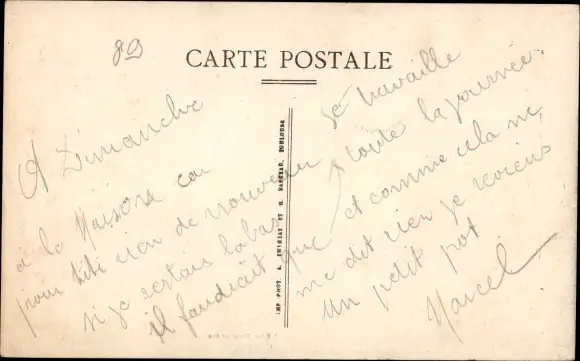 89
CARTE POSTALE
A Dimanche
a la Maison car
pour titi rien de nouveau
si je restais labas
il faudrait que
je travaille
toute la journée
et comme cela ne
me dit rien je reviens
un petit pot
Marcel
IMP PHOT. A. ET H. TOULOUSE